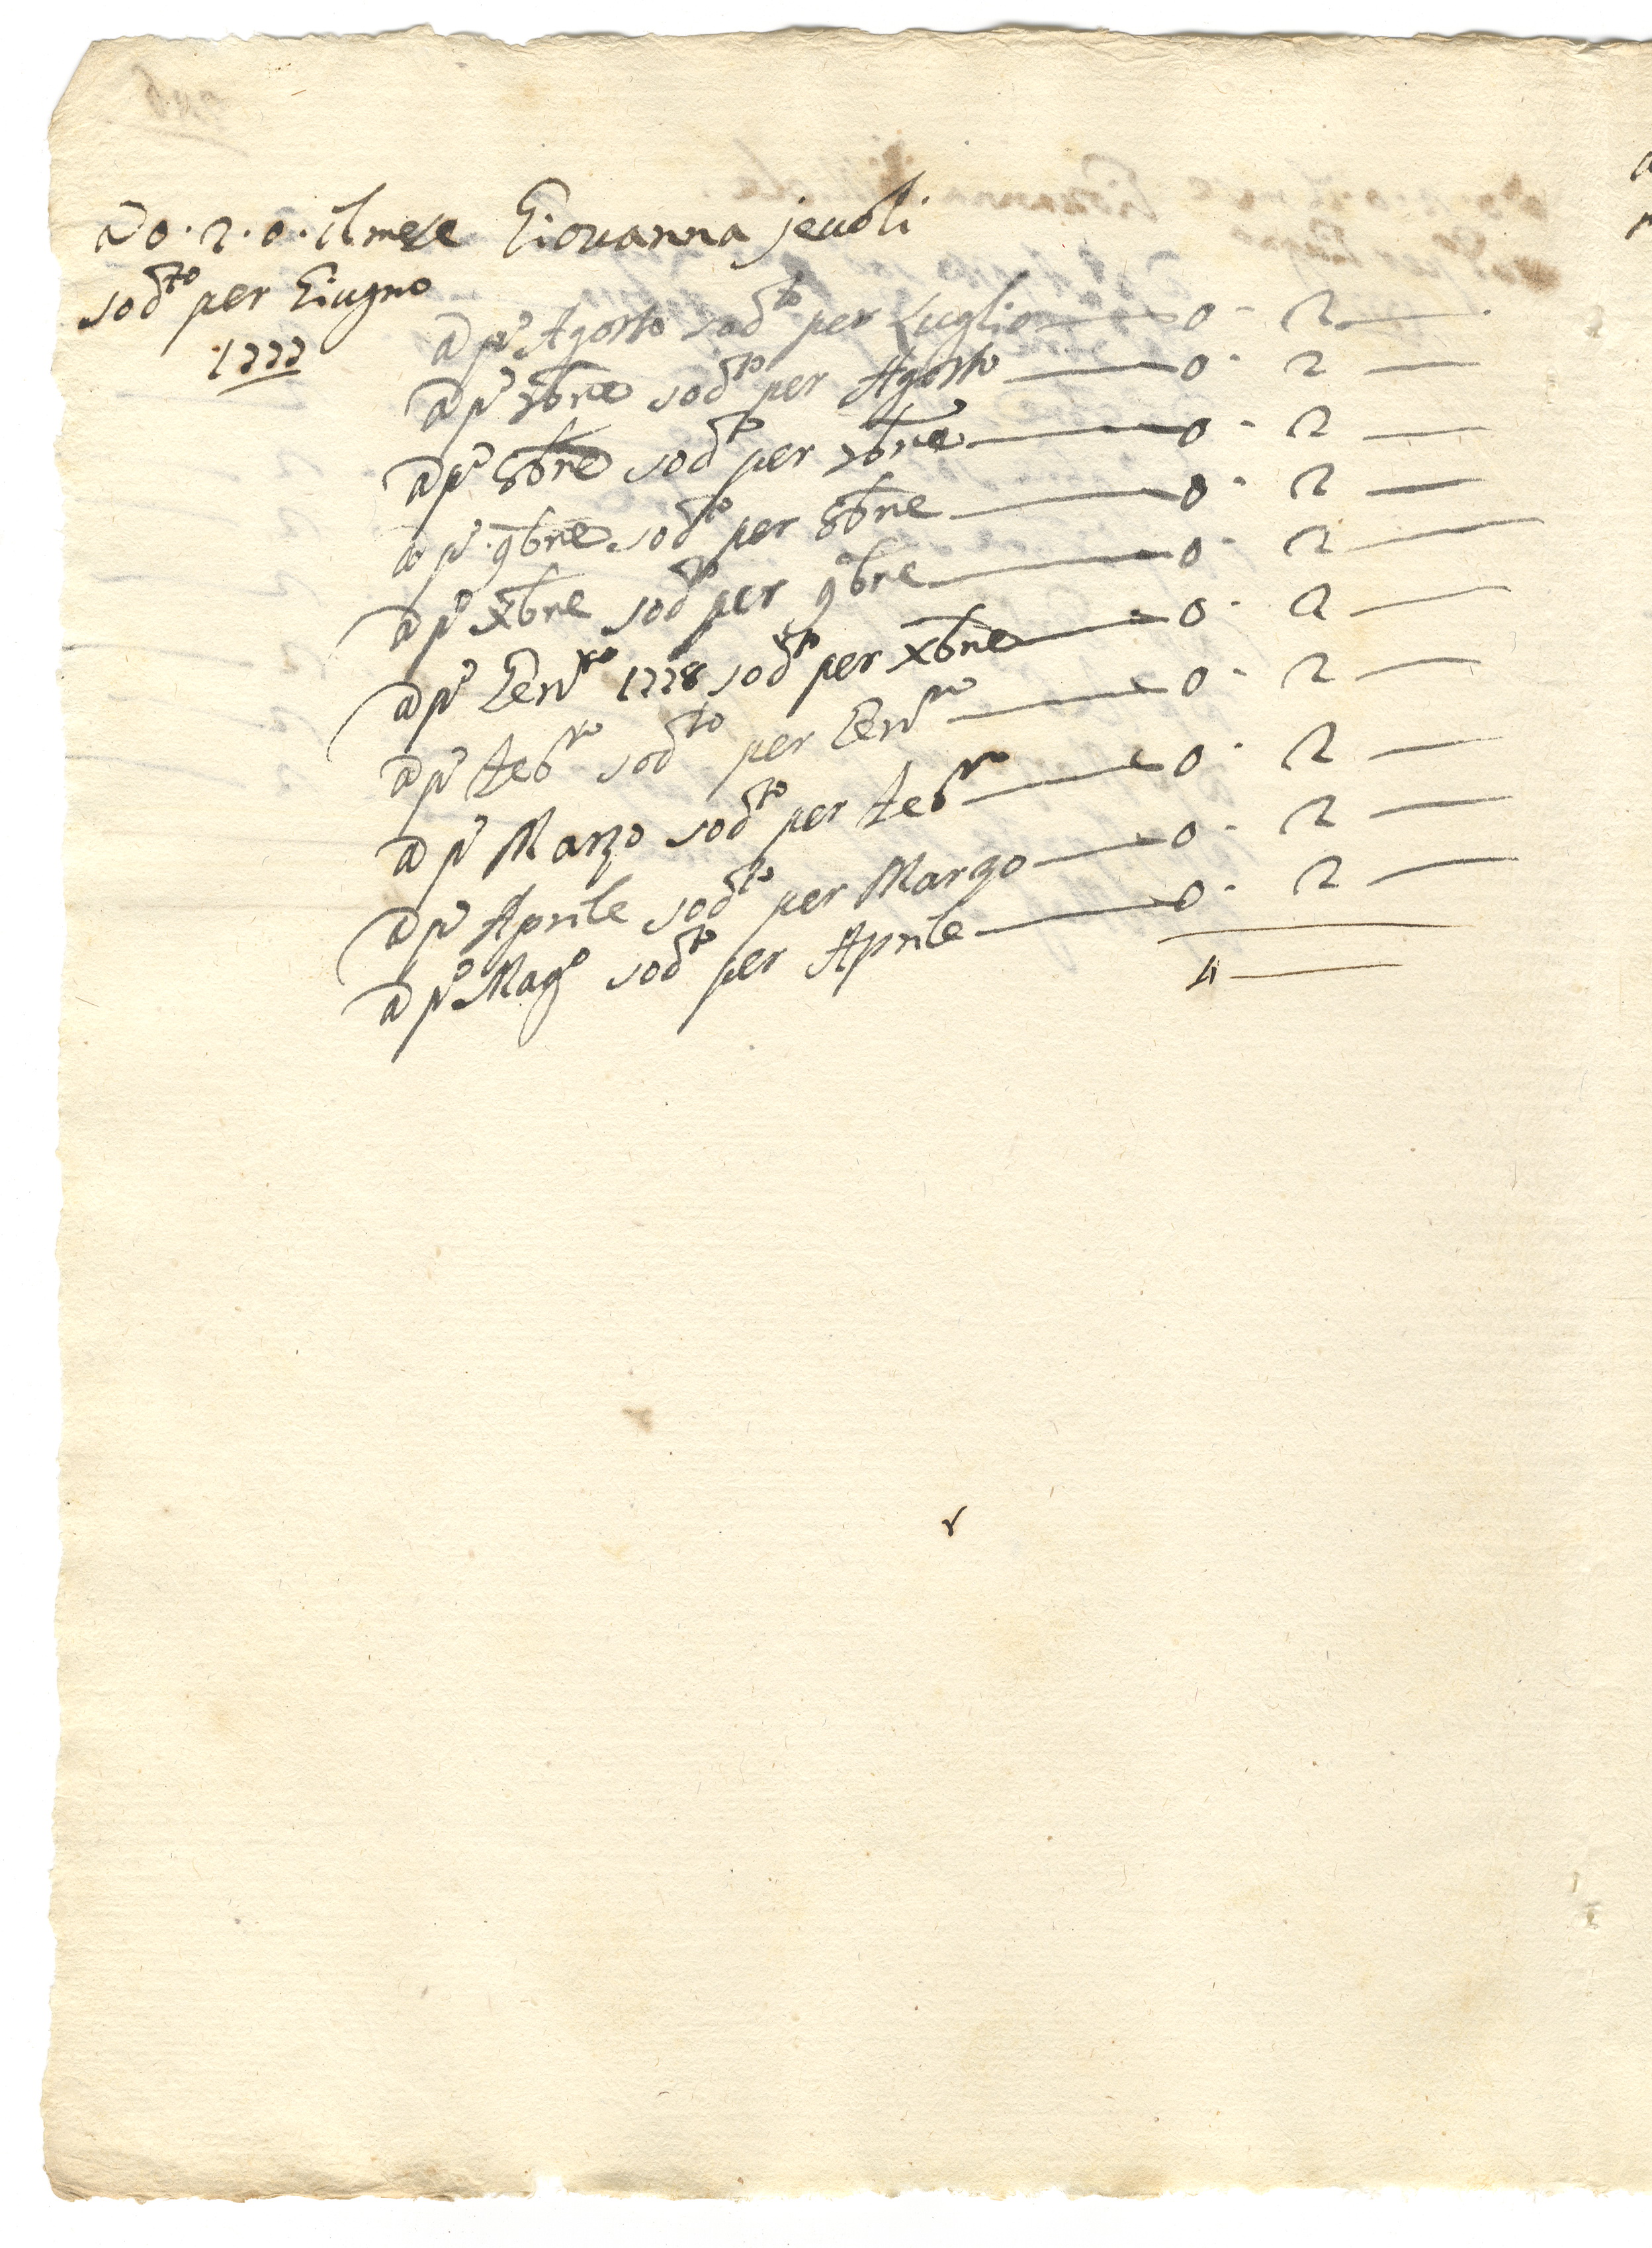 a 0.2.0. il mese Giovanna jevoli
sodto per Giugno
1777
a pº Agosto sodto per Luglio — 0 - 2 —
a pº 7bre sodto per Agosto — 0 - 2 —
a pº 8bre sodto per 7bre — 0 - 2 —
a pº 9bre sodto per 8bre — 0 - 2 —
a pº Xbre sodto per 9bre — 0 - 2 —
a pº Genro 1778 sodto per Xbre — 0 - 2 —
a pº Febro sodto per Genro — 0 - 2 —
a pº Marzo sodto per Febro — 0 - 2 —
a pº Aprile sodto per Marzo — 0 - 2 —
a pº Magº sodto per Aprile — 0 - 2 —
4 —